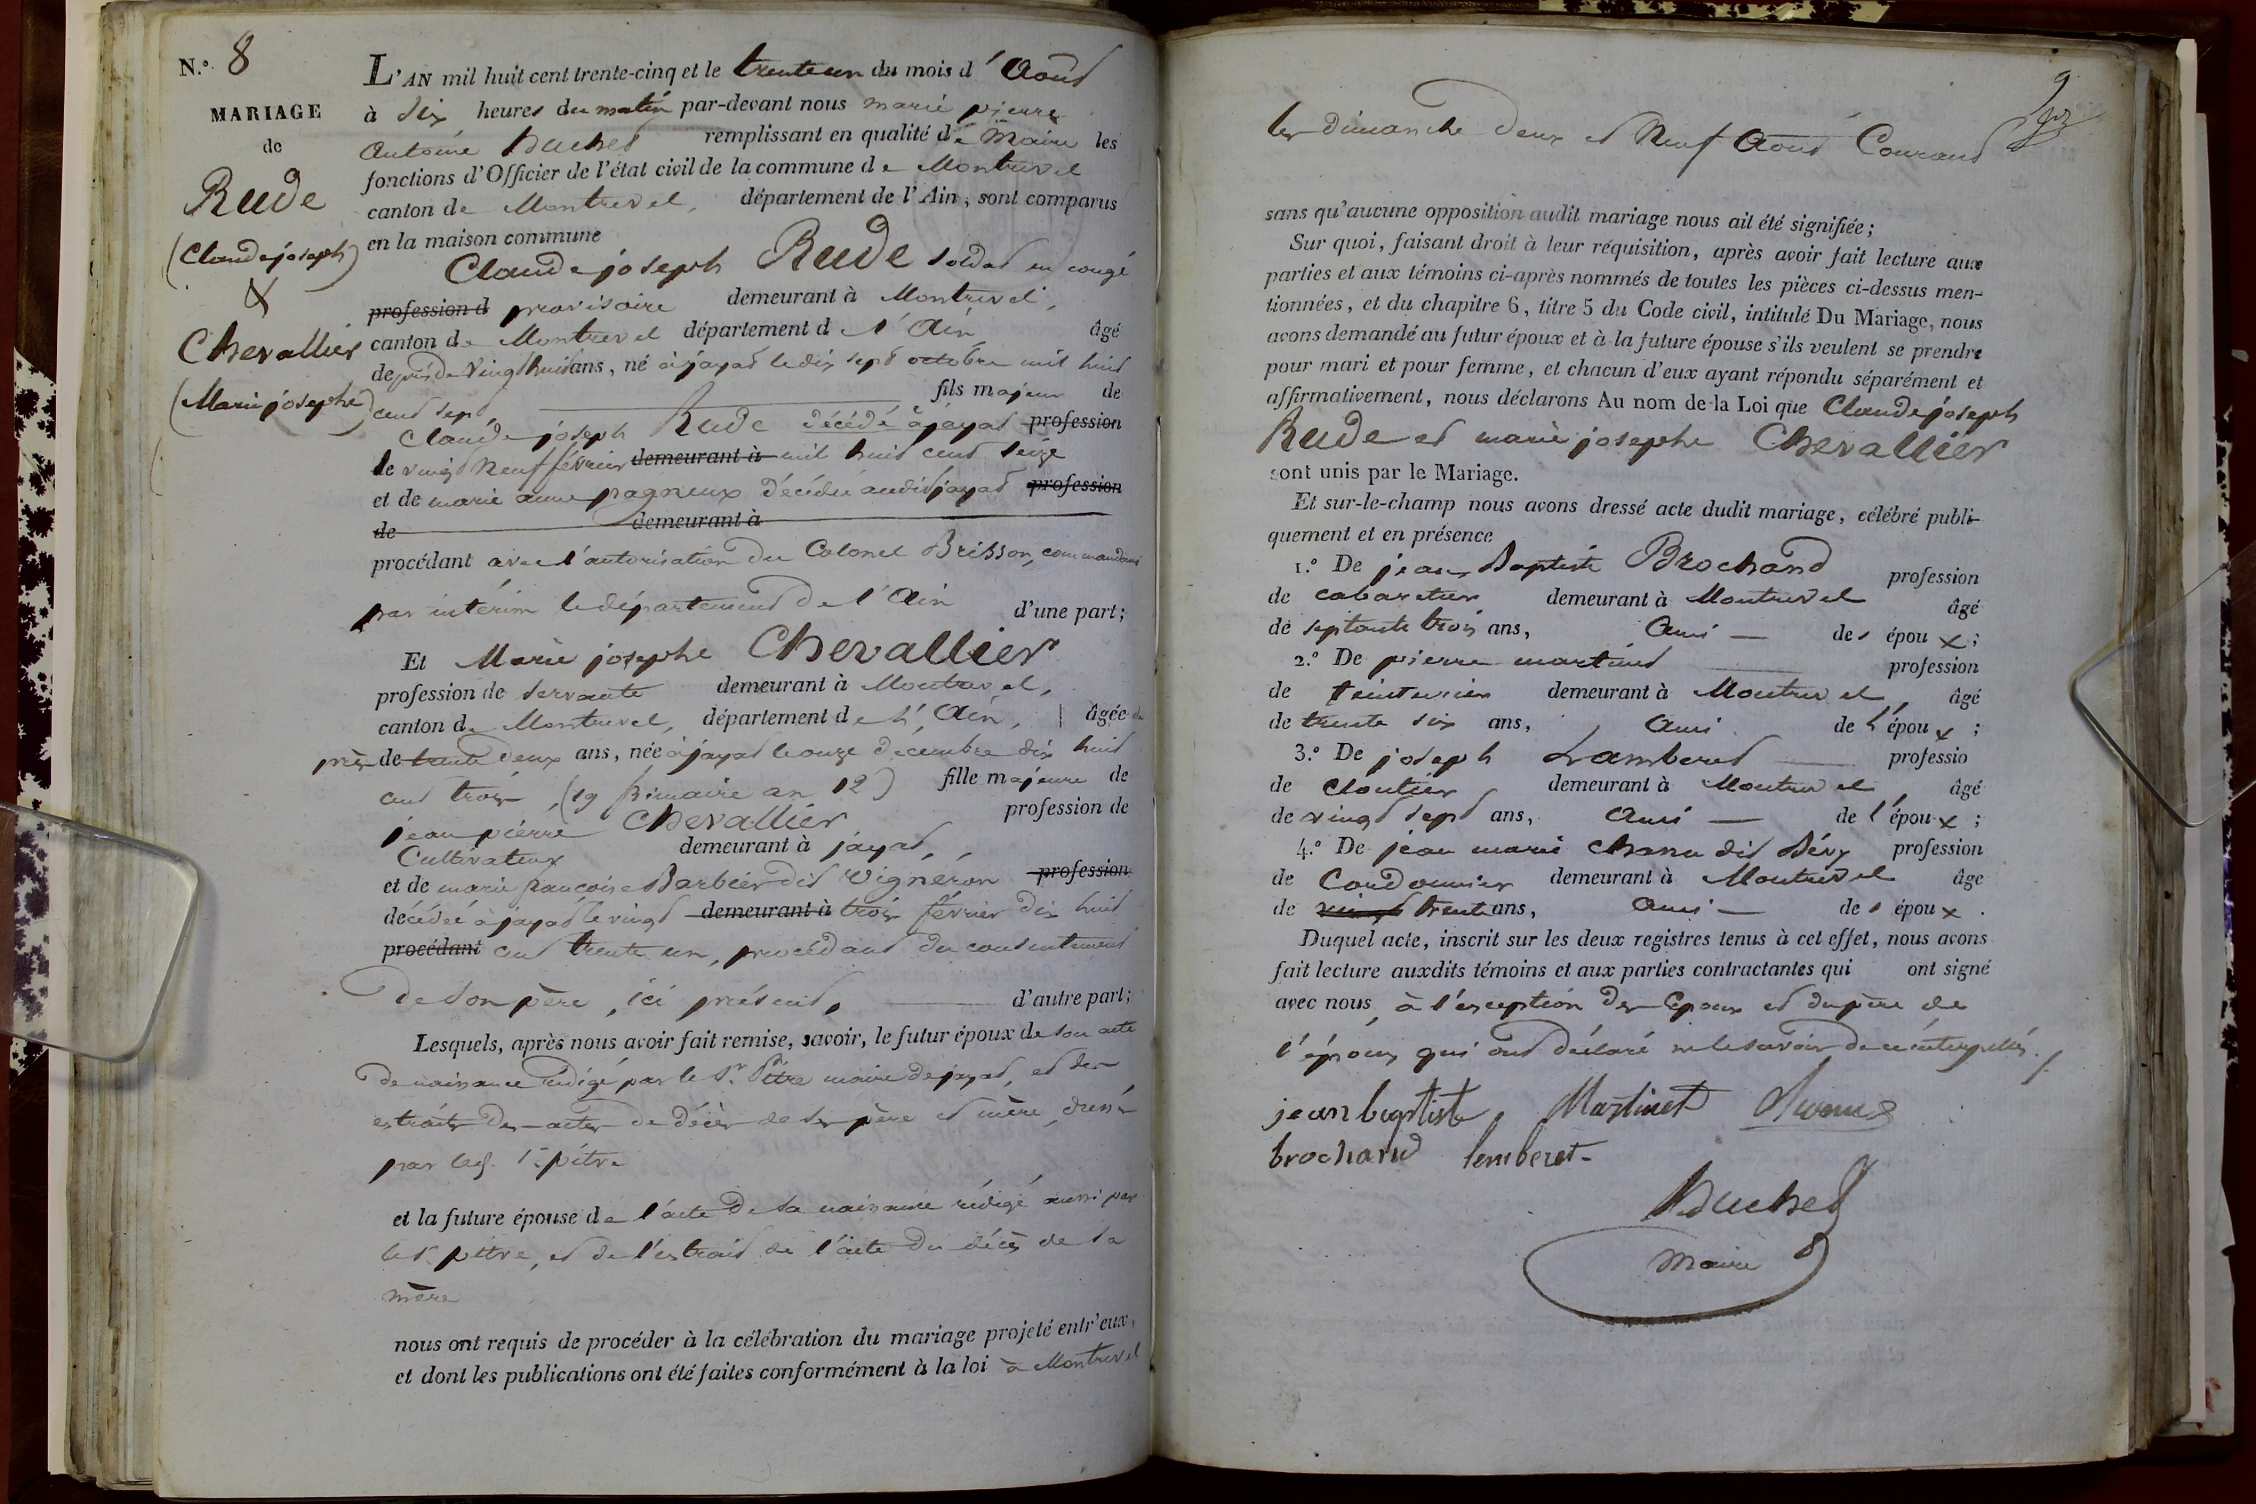 N.° 8
MARIAGE
de
Rude
(Claude joseph)
&
Chevallier
(Marie josephe)
L'AN mil huit cent trente-cinq et le trente un du mois d'Aoust
à six heures du matin par-devant nous marie pierre
Antoine Buchet remplissant en qualité de Maire les
fonctions d'Officier de l'état civil de la commune de Montrevel
canton de Montrevel, département de l'Ain, sont comparus
en la maison commune
Claude joseph Rude soldat en congé
profession d provisoire demeurant à Montrevel,
canton de Montrevel département de l'Ain âgé
de près de vingt huit ans, né à jayat le dix sept octobre mil huit
cent sept, fils majeur de
Claude joseph Rude décédé à jayat profession
le vingt neuf février demeurant à mil huit cent seize
et de marie anne pagneux décédée audit jayat profession
de demeurant à
procédant avec l'autorisation du Colonel Brisson, commandant
par intérim le département de l'Ain d'une part;
Et Marie josephe Chevallier
profession de servante demeurant à Montrevel,
canton de Montrevel, département de l'Ain, âgée de
près de trente deux ans, née à jayat le onze décembre dix huit
cent trois, (19 frimaire an 12) fille majeure de
jean pierre Chevallier profession de
Cultivateur demeurant à jayat,
et de marie françoise Barbier dit Vigneron profession
décédée à jayat le vingt demeurant à trois février dix huit
procédant cent trente un, procédant du consentement
de son père, ici présent, d'autre part;
Lesquels, après nous avoir fait remise, savoir, le futur époux de son acte
de naissance rédigé par le Sr. Pitre maire de jayat, et des
extraits des actes de décès de ses père et mère, dressés
par led. Sr. pitre
et la future épouse de l'acte de sa naissance rédigé aussi par
le Sr. pitre, et de l'extrait de l'acte du décès de sa
mère
nous ont requis de procéder à la célébration du mariage projeté entr'eux,
et dont les publications ont été faites conformément à la loi à Montrevel
les dimanche deux et Neuf Aoust Courant
sans qu'aucune opposition audit mariage nous ait été signifiée;
Sur quoi, faisant droit à leur réquisition, après avoir fait lecture aux
parties et aux témoins ci-après nommés de toutes les pièces ci-dessus men-
tionnées, et du chapitre 6, titre 5 du Code civil, intitulé Du Mariage, nous
avons demandé au futur époux et à la future épouse s'ils veulent se prendre
pour mari et pour femme, et chacun d'eux ayant répondu séparément et
affirmativement, nous déclarons Au nom de la Loi que Claude joseph
Rude et marie josephe Chevallier
sont unis par le Mariage.
Et sur-le-champ nous avons dressé acte dudit mariage, célébré publi-
quement et en présence
1.° De jean Baptiste Brochand profession
de cabaretier demeurant à Montrevel âgé
de septante trois ans, Ami des époux;
2.° De pierre martinet profession
de teinturier demeurant à Montrevel, âgé
de trente six ans, Ami de l'époux;
3.° De joseph Lamberet professio
de cloutier demeurant à Montrevel, âgé
de vingt sept ans, Ami de l'époux;
4.° De jean marie Chanu dit Sévy profession
de Cordonnier demeurant à Montrevel âgé
de vingt trente ans, Ami des époux.
Duquel acte, inscrit sur les deux registres tenus à cet effet, nous avons
fait lecture auxdits témoins et aux parties contractantes qui ont signé
avec nous, à l'exception des Epoux et du père de
l'épouse qui ont déclaré ne le savoir de ce interpellés.
jean baptiste Martinet
brochand lemberet
Buchet
Maire